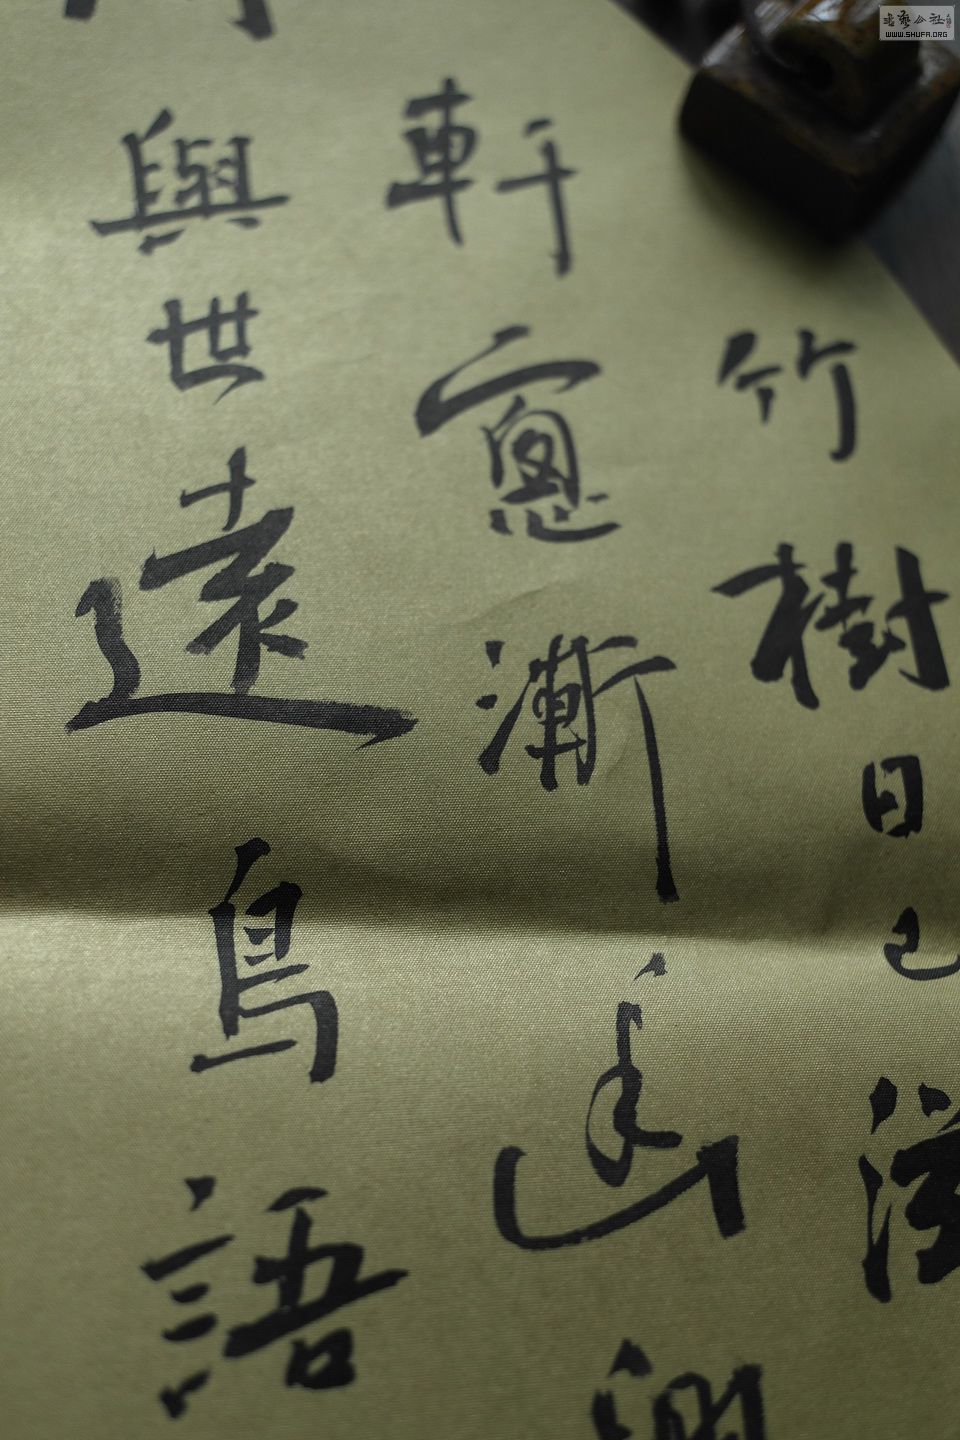 竹樹日已滋
軒窻漸幽興
與世遠鳥語
書藝公社
WWW.SHUFA.ORG